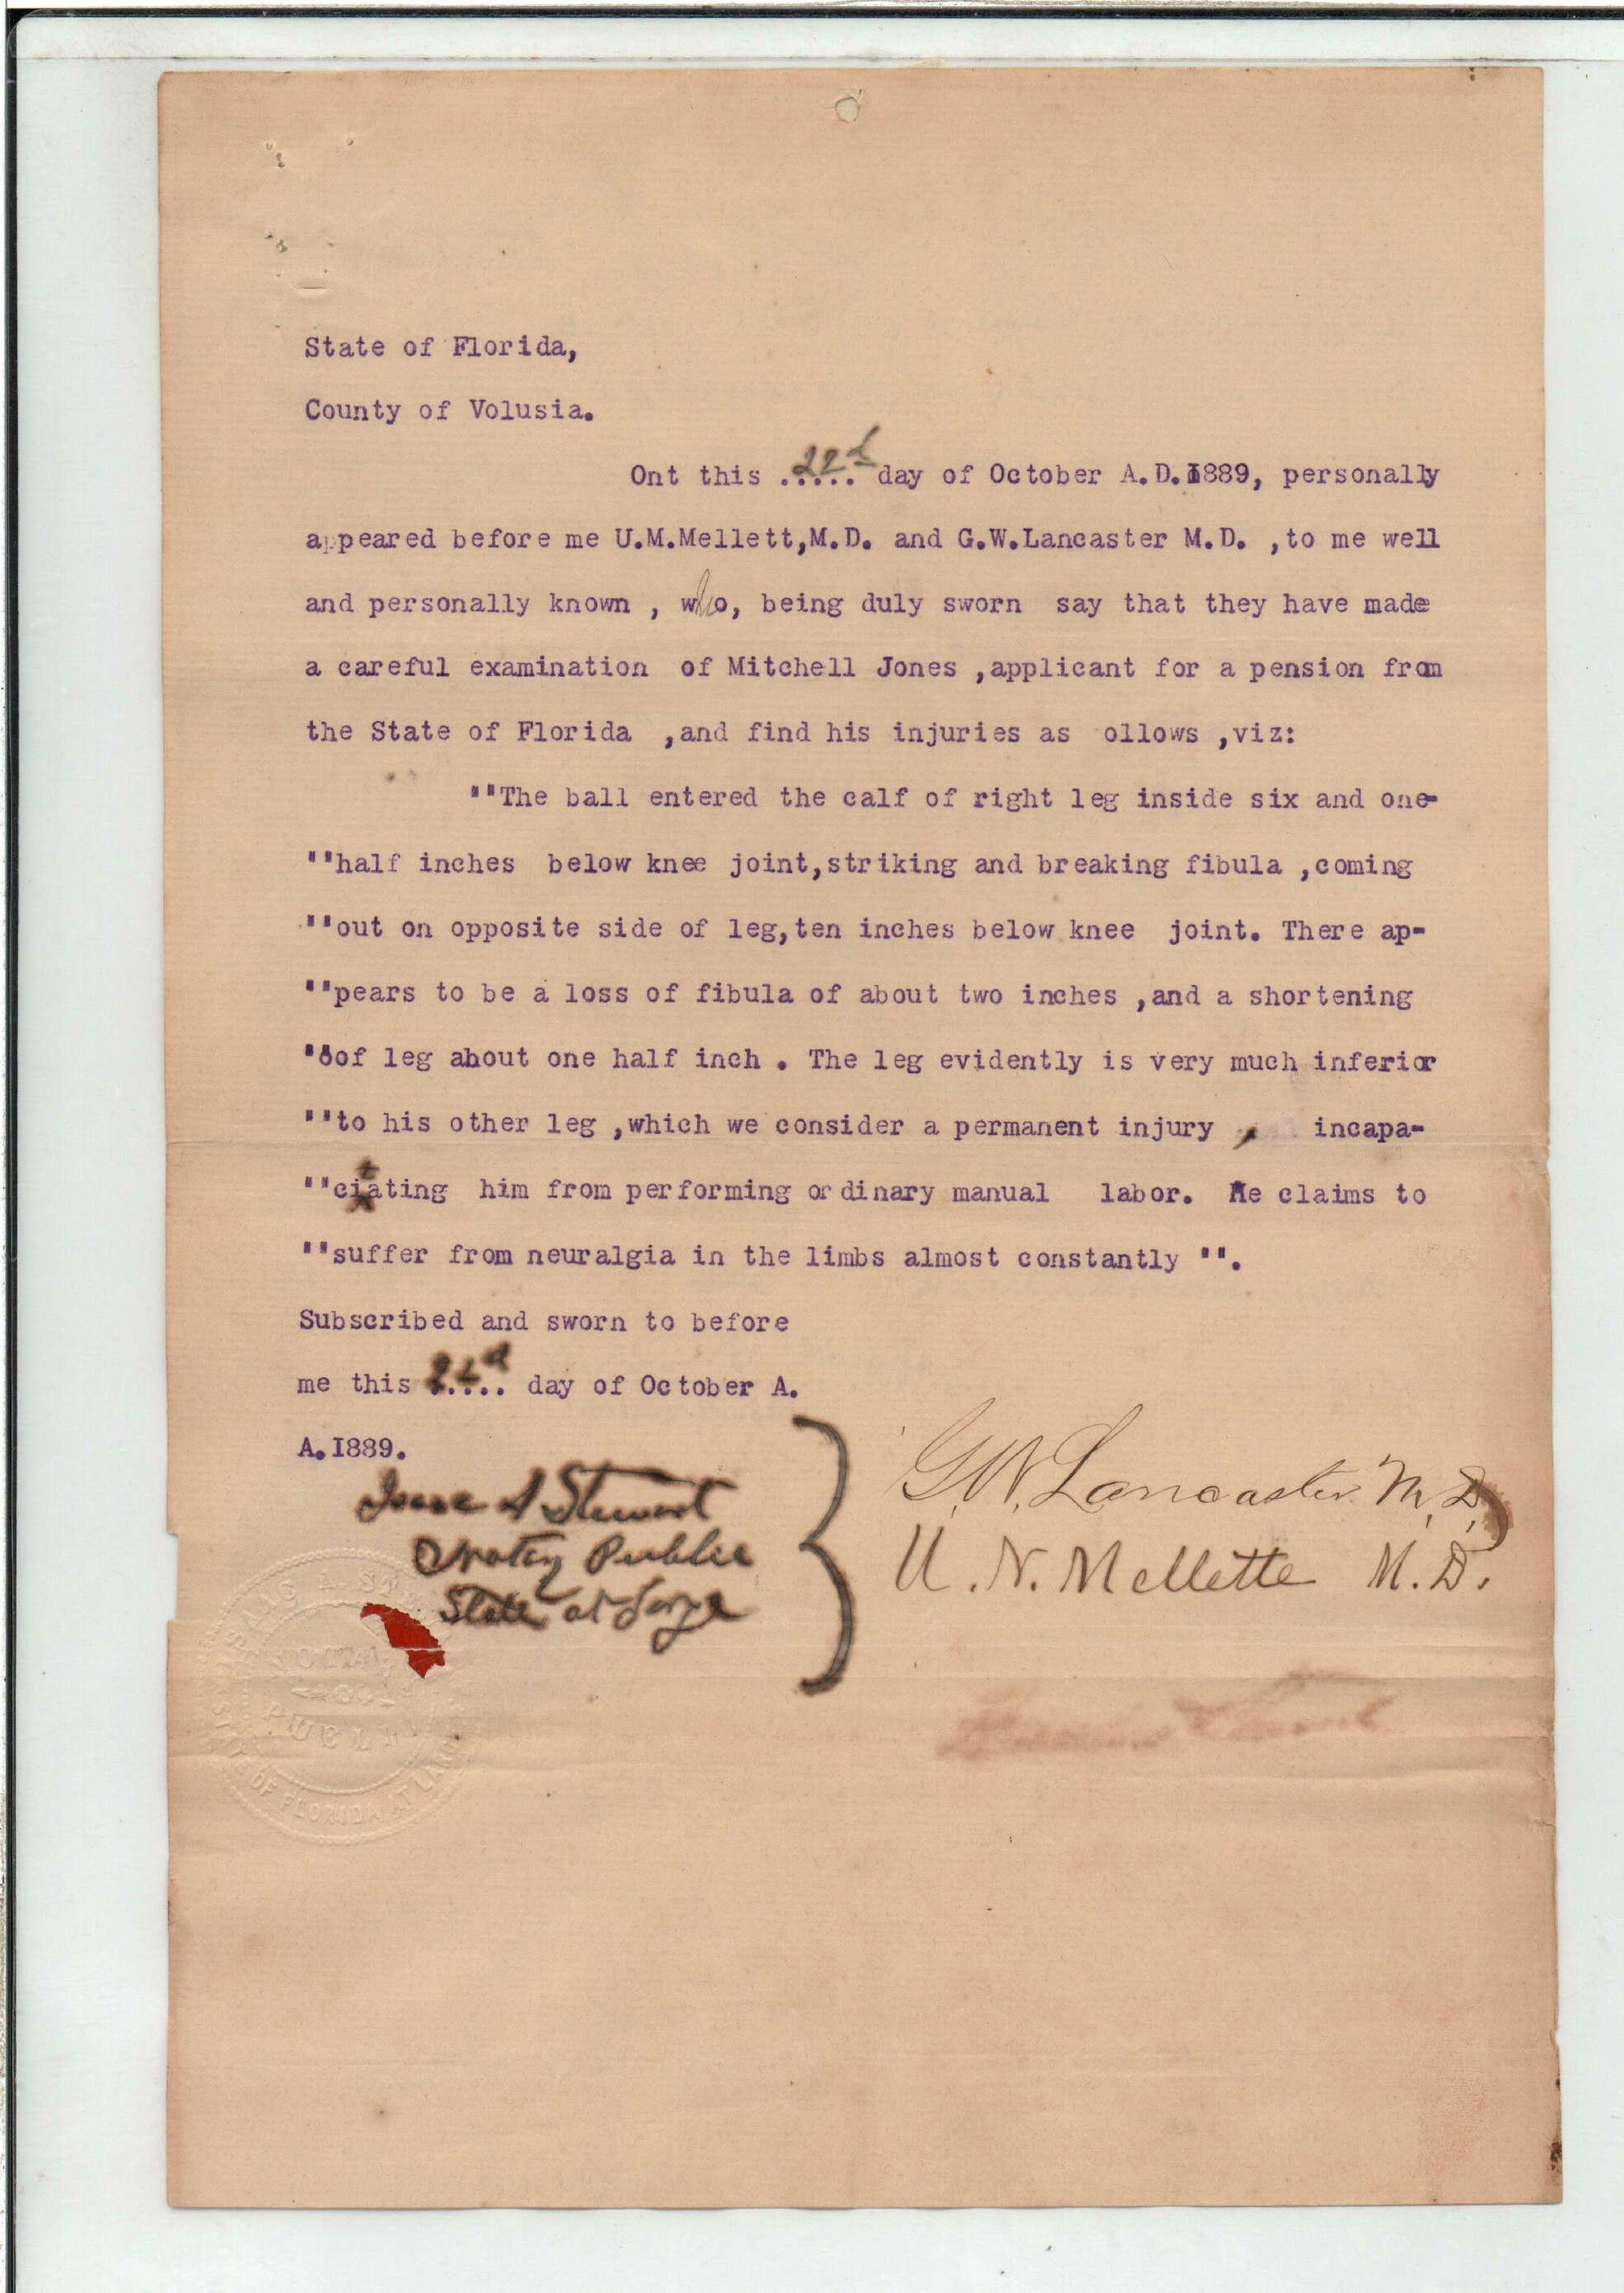 State of Florida,
County of Volusia.
Ont this 22d day of October A.D.I889, personally
appeared before me U.M.Mellett,M.D. and G.W.Lancaster M.D. ,to me well
and personally known , who, being duly sworn say that they have made
a careful examination of Mitchell Jones ,applicant for a pension from
the State of Florida ,and find his injuries as ollows ,viz:
""The ball entered the calf of right leg inside six and one-
""half inches below knee joint,striking and breaking fibula ,coming
""out on opposite side of leg,ten inches below knee joint. There ap-
""pears to be a loss of fibula of about two inches ,and a shortening
"oof leg about one half inch . The leg evidently is very much inferior
""to his other leg ,which we consider a permanent injury , incapa-
""citating him from performing ordinary manual labor. He claims to
""suffer from neuralgia in the limbs almost constantly "".
Subscribed and sworn to before
me this 22d day of October A.
A.I889.
Isaac A Stewart
Notary Public
State at Large
G.W. Lancaster M.D.
U. N. Mellette M.D.
ISAAC A. ST
NOTARY
PUBLIC
STATE OF FLORIDA AT LARGE